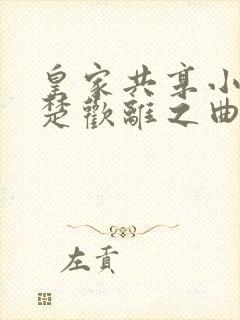 皇家共享小
楚歡離之曲
左貢